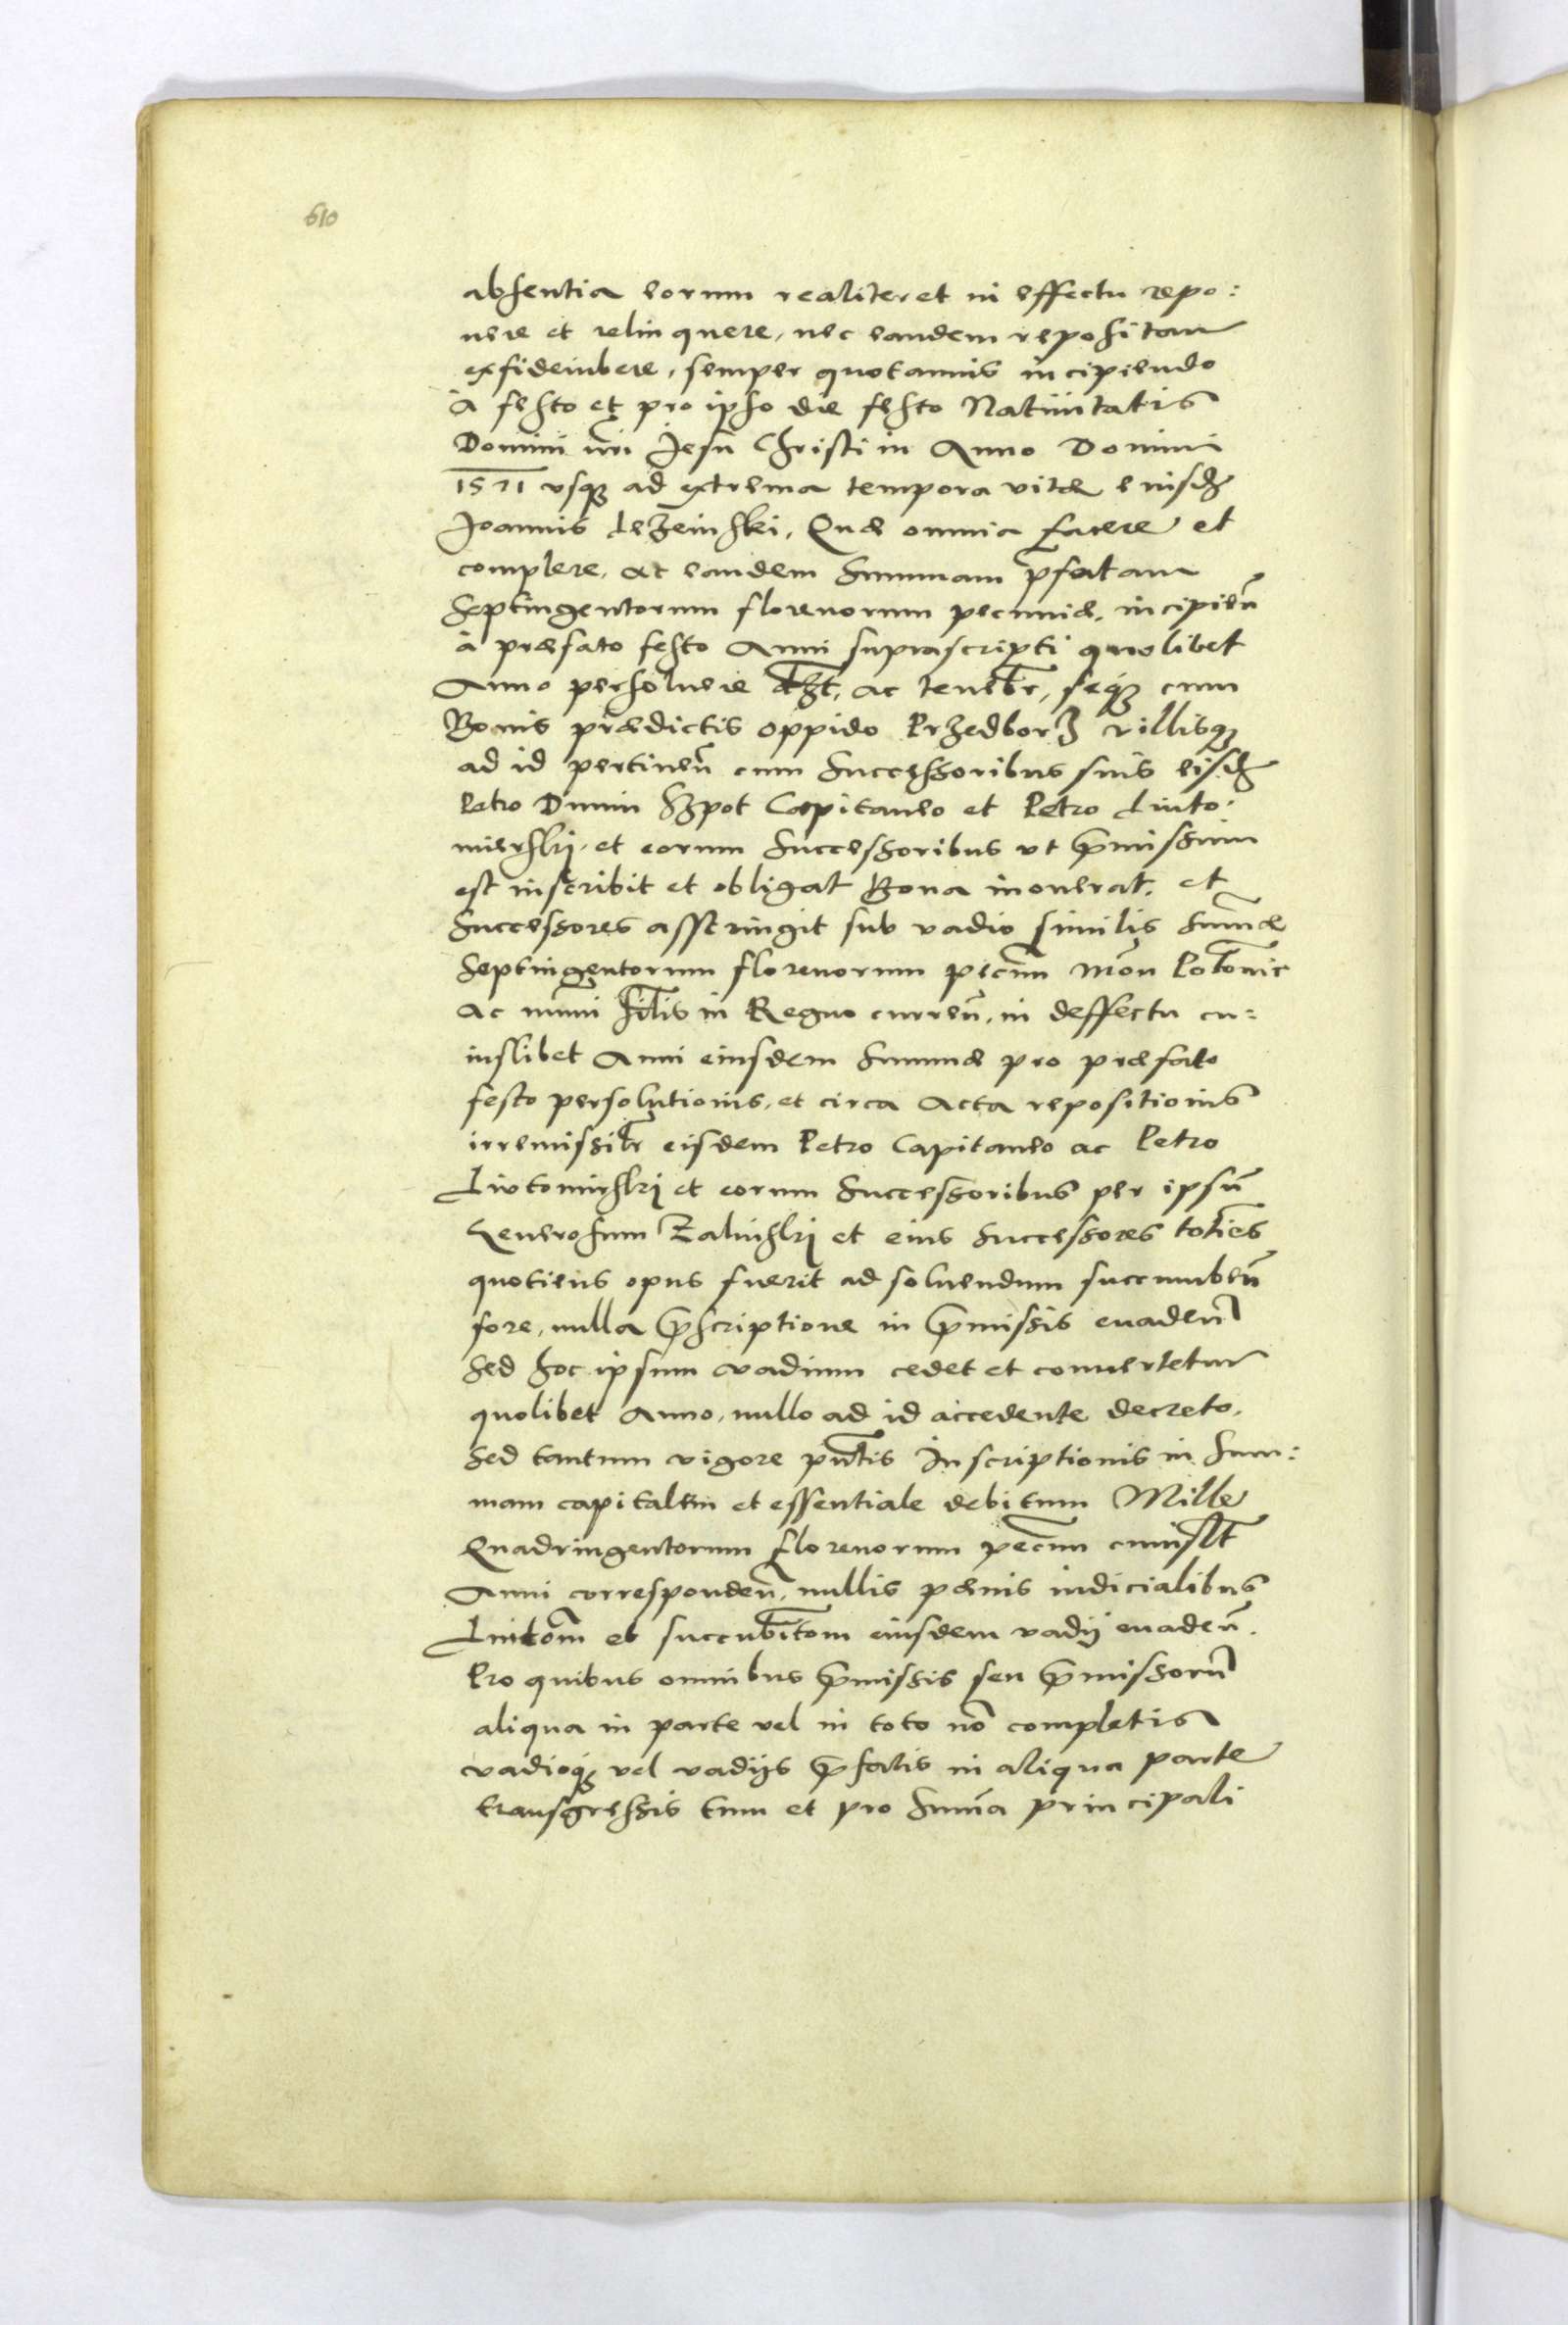 610
absentia eorum realiter et in effectu repo:
nere et relinquere, nec eandem repositam
exfideiubere, semper quotannis incipiendo
à festo et pro ipso die festo Natiuitatis
Domini nri Jesu Christi in Anno Domini
1571 vsq ad extrema tempora vitæ eiusd
Joannis Lezeinski, Quæ omnia facere et
complere, ac eandem Summam pfatam
Septingentorum florenorum pecuniæ, incipieñ
à præfato festo Anni suprascripti quolibet
Anno persoluere ac tenebr, seq cum
Bonis prædictis oppido Przedborz villisq
ad id pertineñ cum Successoribus suis eisd
Petro Dunin Szpot Capitaneo et Petro Liuto:
mierski, et eorum Successoribus vt pmissum
est inscribit et obligat Bona inonerat, et
Successores asstringit sub vadio similis Sum̃æ
Septingentorum florenorum pecun Moñ Polonic
ac nũmi in Regno curreñ, in deffectu cu:
iuslibet Anni eiusdem Summæ pro præfato
festo persolutionis, et circa Acta repositionis
irremissibr eisdem Petro Capitaneo ac Petro
Liutomirski et eorum Successoribus per ipsũ
Generosum Zalinski et eius Successores toties
quotiens opus fuerit ad soluendum succumbeñ
fore, nulla pscriptione in pmissis euadeñ
Sed hoc ipsum vadium cedet et conuertetur
quolibet Anno, nullo ad id accedente decreto,
Sed tantum vigore pntis Inscriptionis in Sum:
mam capitalem et essentiale debitum Mille
Quadringentorum florenorum pecun cuiuslt
Anni correspondeñ, nullis pænis iudicialibus
et succubitom eiusdem vadij euadeñ.
Pro quibus omnibus pmissis seu pmissorũ
aliqua in parte vel in toto nõ completis
vadioq vel vadijs pfatis in aliqua parte
transgressis tum et pro Sum̃a principali